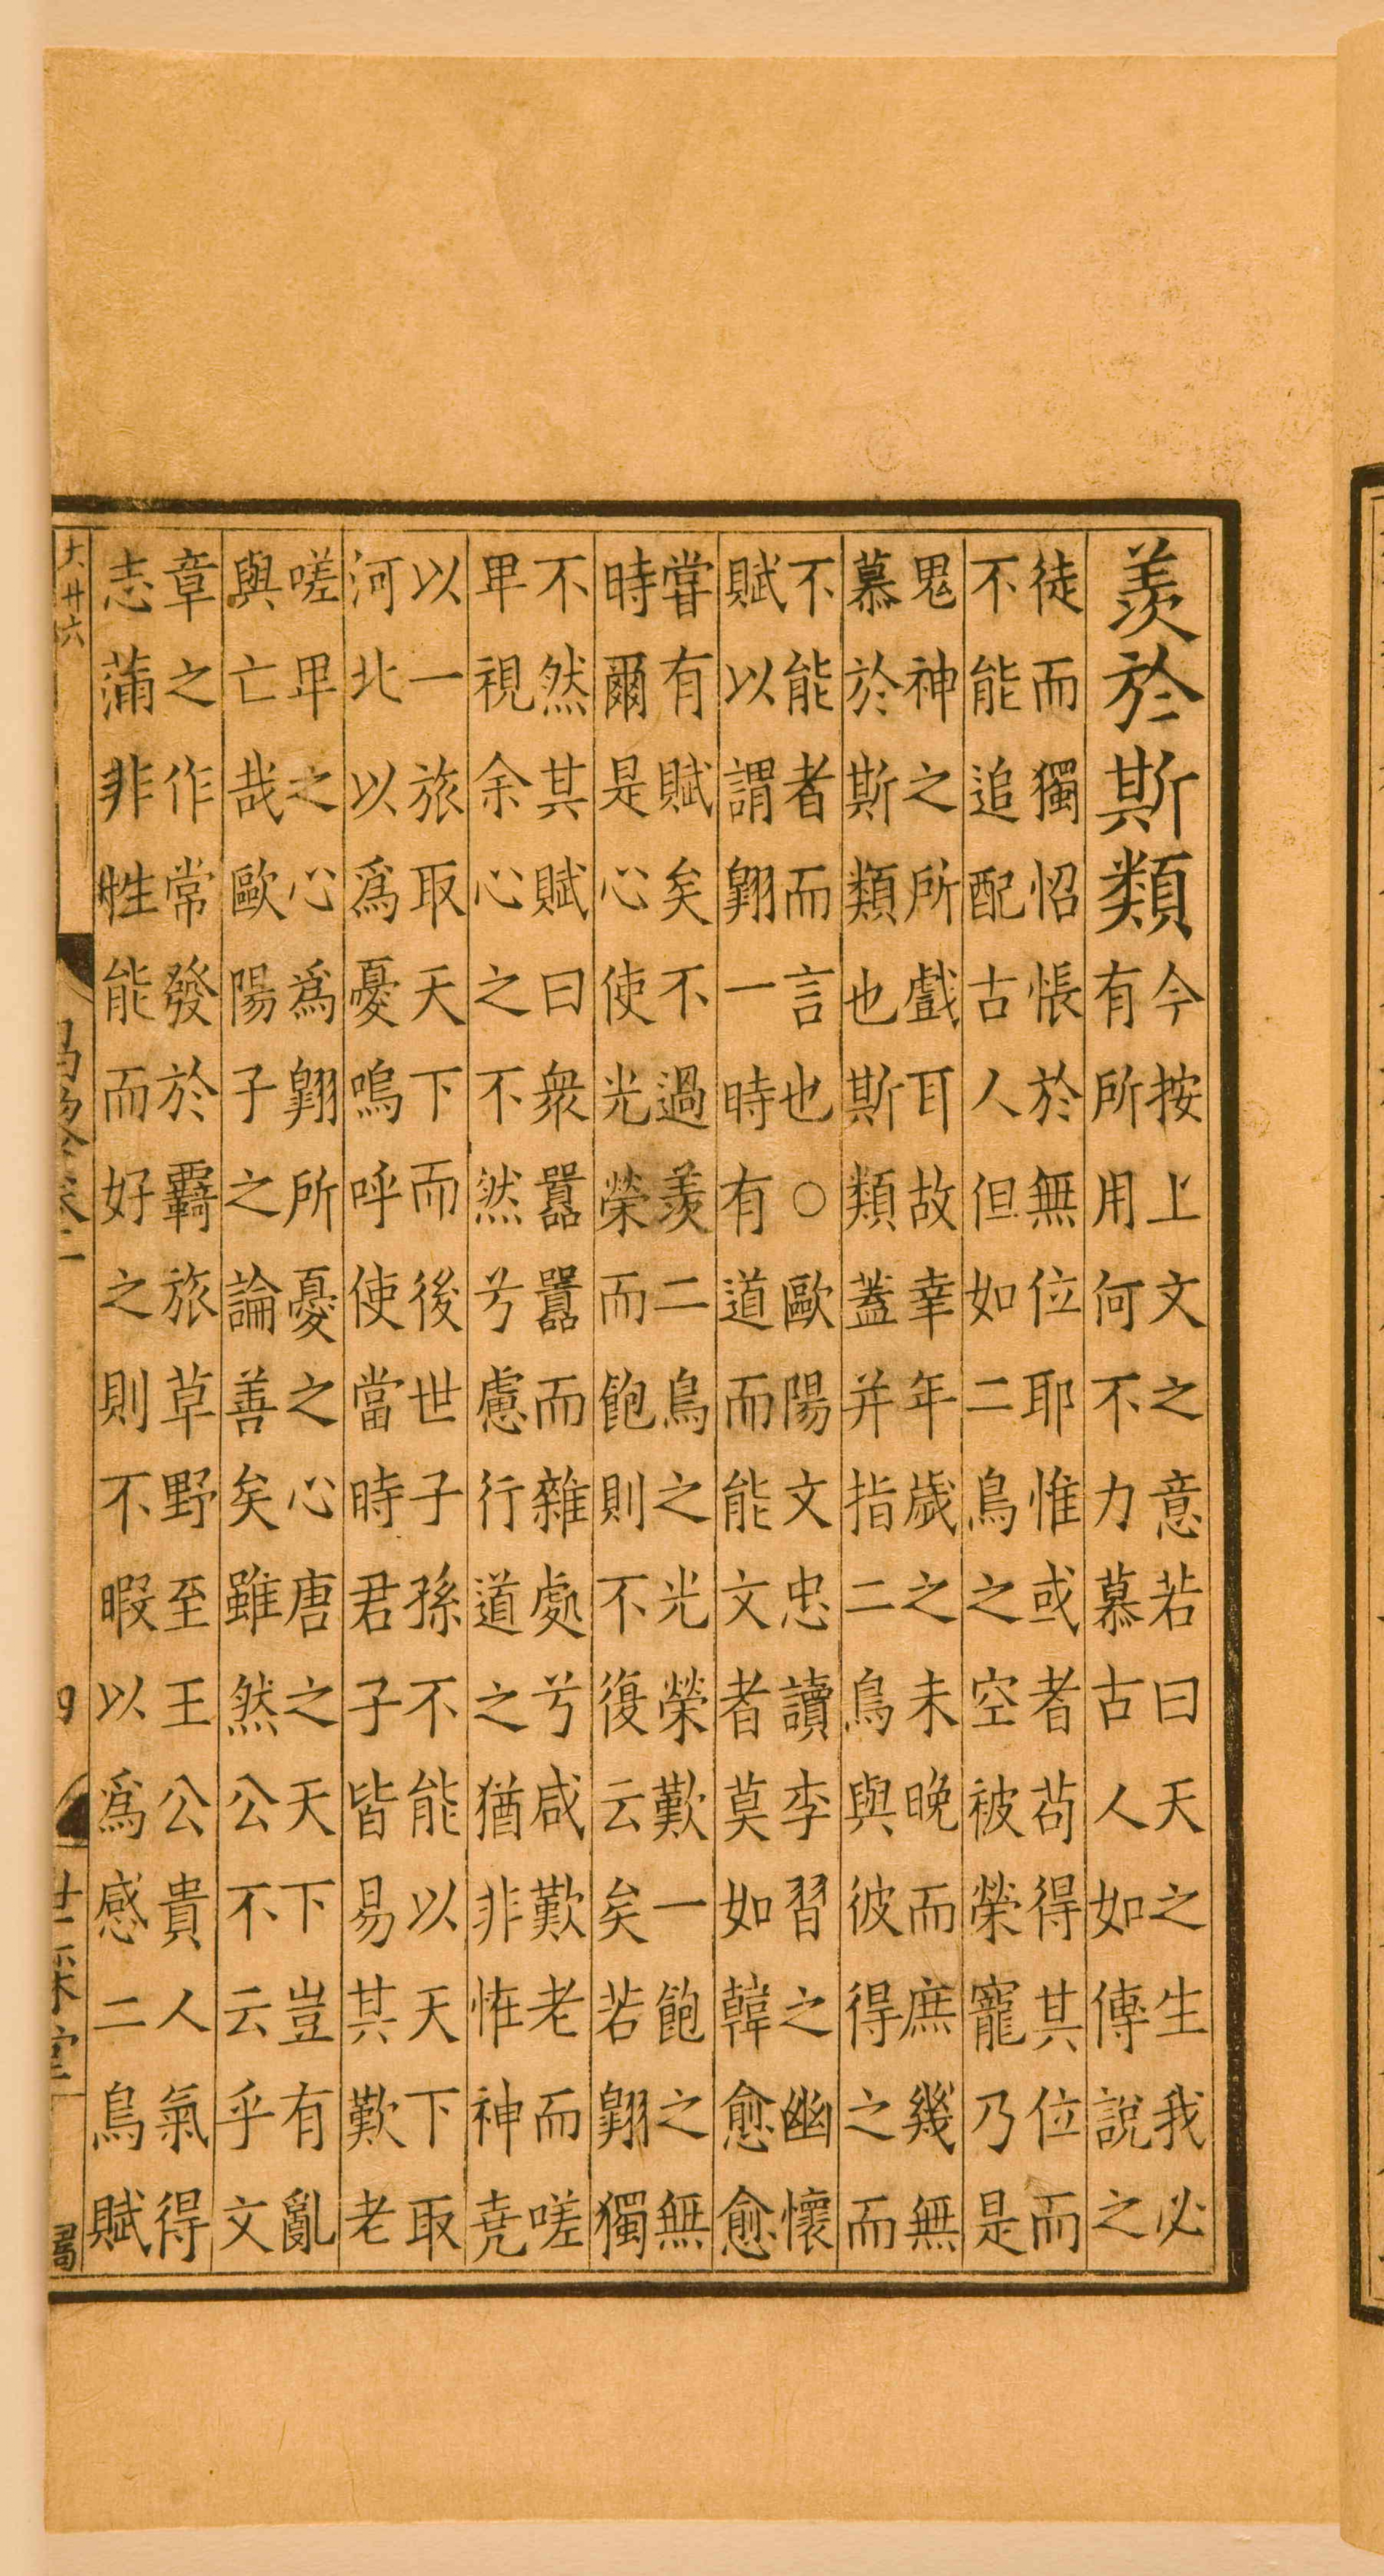 羨於斯類
今按上文之意若曰天之生我必
有所用何不力慕古人如傳說之
徒而獨怊悵於無位耶惟或者苟得其位而
不能追配古人但如二鳥之空被榮寵乃是
鬼神之所戲耳故幸年歲之未晚而庶幾無
慕於斯類也斯類蓋并指二鳥與彼得之而
不能者而言也○歐陽文忠讀李習之幽懷
賦以謂翺一時有道而能文者莫如韓愈愈
嘗有賦矣不過羨二鳥之光榮歎一飽之無
時爾是心使光榮而飽則不復云矣若翺獨
不然其賦曰衆囂囂而雜處兮咸歎老而嗟
卑視余心之不然兮慮行道之猶非恠神堯
以一旅取天下而後世子孫不能以天下取
河北以爲憂嗚呼使當時君子皆易其歎老
嗟卑之心爲翺所憂之心唐之天下豈有亂
與亡哉歐陽子之論善矣雖然公不云乎文
章之作常發於羇旅草野至王公貴人氣得
志滿非性能而好之則不暇以爲感二鳥賦
大廿六
世綵堂